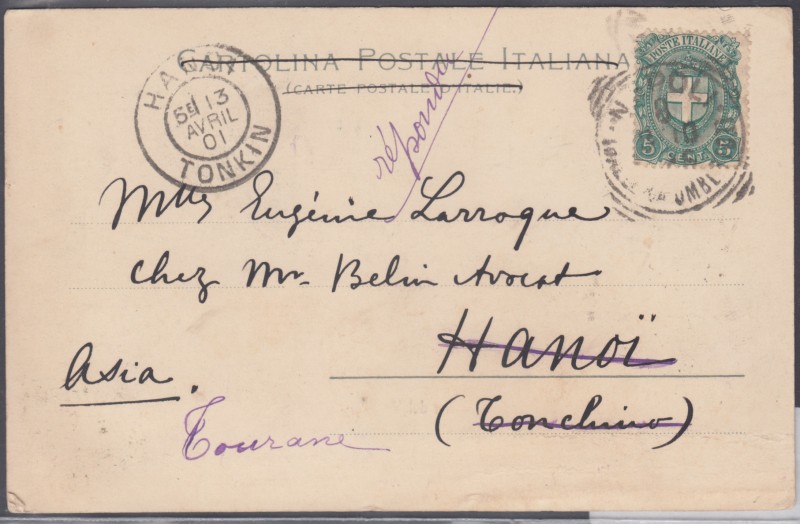 CARTOLINA POSTALE ITALIANA
(CARTE POSTALE D'ITALIE.)
HANOI
13
AVRIL
01
TONKIN
réponda
POSTE ITALIANE
5 CENT. 5
Mlle Eugénie Larroque
chez Mr Belin Avocat
Hanoï
Asia.
(Tonchino)
Tourane